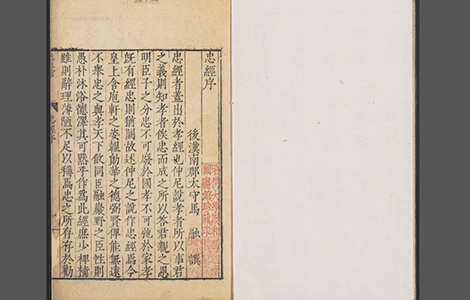 忠經序
後漢南郡太守馬 融 撰
忠經者蓋出於孝經也仲尼說孝者所以事君
之義則知孝者俟忠而成之所以答君親之恩
明臣子之分忠不可廢於國孝不可弛於家孝
既有經忠則猶闕故述仲尼之說作忠經焉今
皇上含庖軒之姿韞勛華之德弼賢俾能無遠
不舉忠之與孝天下攸同臣融巖野之臣性則
愚朴沐浴德澤其可默乎作為此經庶少裨補
雖則辭理薄陋不足以稱焉忠之所存存於勸